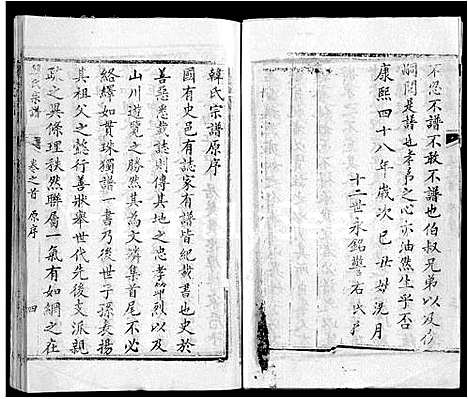 不忍不譜不敢不譜也伯叔兄弟以及
嗣閱是譜也孝弟之心亦油然生乎否
康熙四十八年歲次己丑荷洗月
十二世永銘
韓氏宗譜原序
國有史邑有志家有譜皆紀載書也史於
善惡悉載誌則傳其地之忠孝節烈以及
山川遊覽之勝然其為文璘集首尾不必
絡繹如貫珠獨譜一書乃後世子孫表揚
其祖父之懿行善狀舉世代先後支派親
疏之異條理秩然聯屬一氣有如網之在
韓氏宗譜 卷之首 原序 四